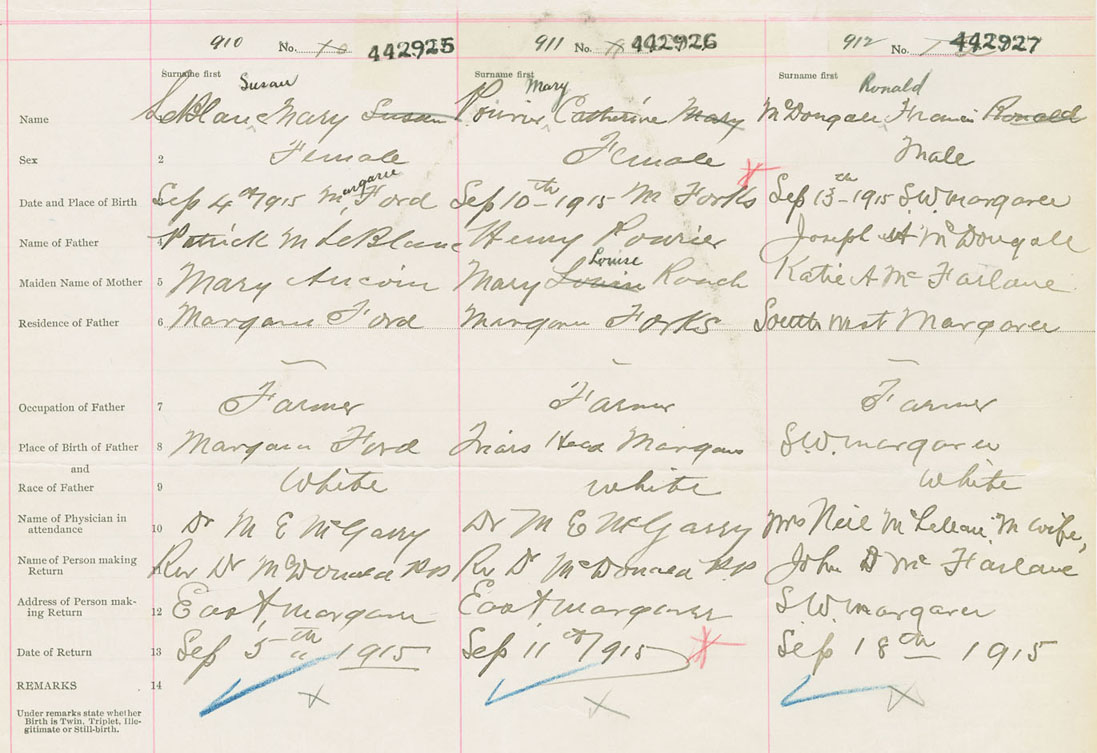 910 No. 442925 911 No. 442926 912 No. 442927
Surname first Surname first Surname first
Susan Mary Ronald
Name LeBlanc Mary Susan Poirier Catherine Mary McDougall Francis Ronald
Sex 2 Female Female Male
argaree
Date and Place of Birth Sep 4th 1915 M Ford Sep 10th 1915 M Forks Sep 13th 1915 S.W. Margaree
Name of Father 4 Patrick M LeBlanc Henry Pourier Joseph A McDougall
Louise
Maiden Name of Mother 5 Mary Aucoin Mary Louise Roach Katie A McFarlane
Residence of Father 6 Margaree Ford Margaree Forks South West Margaree
Occupation of Father 7 Farmer Farmer Farmer
Place of Birth of Father 8 Margaree Ford Friars Head Margaree S.W. Margaree
and
Race of Father 9 White White White
Name of Physician in
attendance 10 Dr M E McGarry Dr M E McGarry Mrs Neil McLellan, M wife,
Name of Person making
Return Rev Dr McDonald P.P Rev Dr McDonald P.P John D McFarlane
Address of Person mak-
ing Return 12 East Margaree East Margaree S.W. Margaree
Date of Return 13 Sep 5th 1915 Sep 11th 1915 Sep 18th 1915
REMARKS 14 x x x
Under remarks state whether
Birth is Twin, Triplet, Ille-
gitimate or Still-birth.